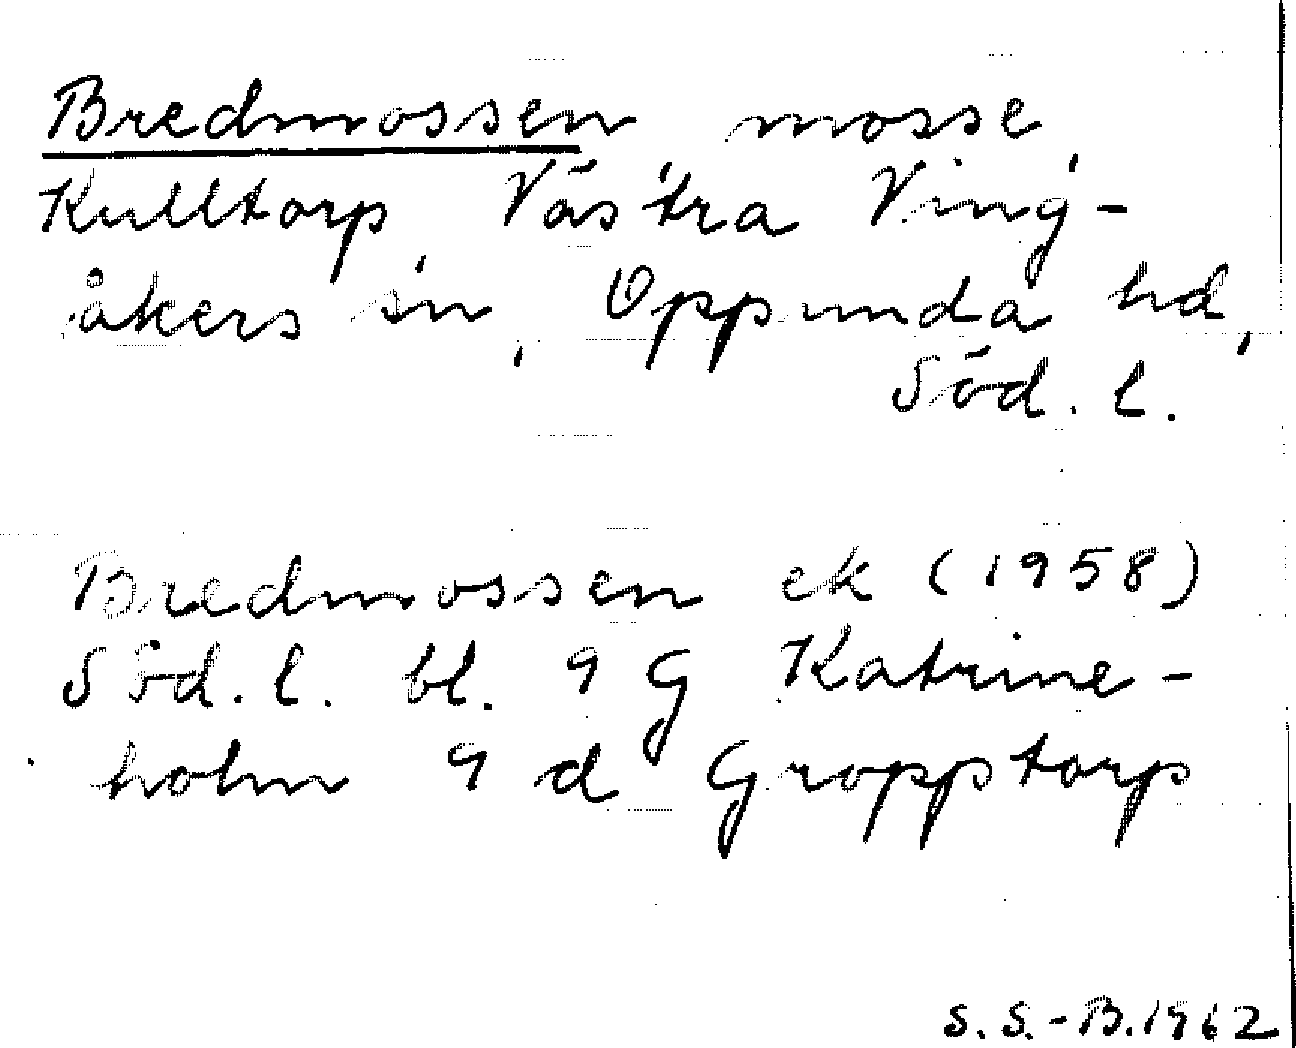 Bredmossen, mosse,
Kulltorp, Västra Ving-
åkers sn, Oppunda hd,
Söd. l.
Bredmossen ek (1958)
Söd. l. bl. 9 G Katrine-
holm 9 d Gropptorp
S. S.-B. 1962